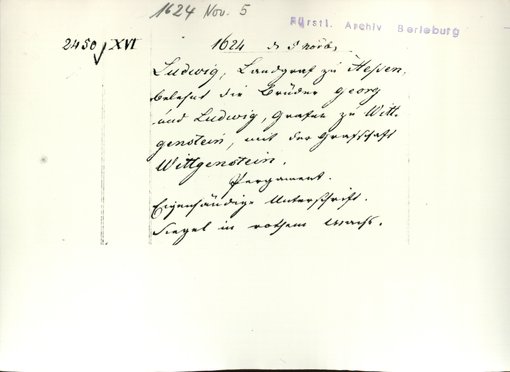 1624 Nov. 5
Fürstl. Archiv Berleburg
2450 XVI
1624 d. 5 Novb.
Ludwig, Landgraf zu Hessen,
belehnt die Brüder Georg
und Ludwig, Grafen zu Witt-
genstein, mit der Grafschaft
Wittgenstein.
Pergament.
Eigenhändige Unterschrift.
Siegel in rothem Wachs.